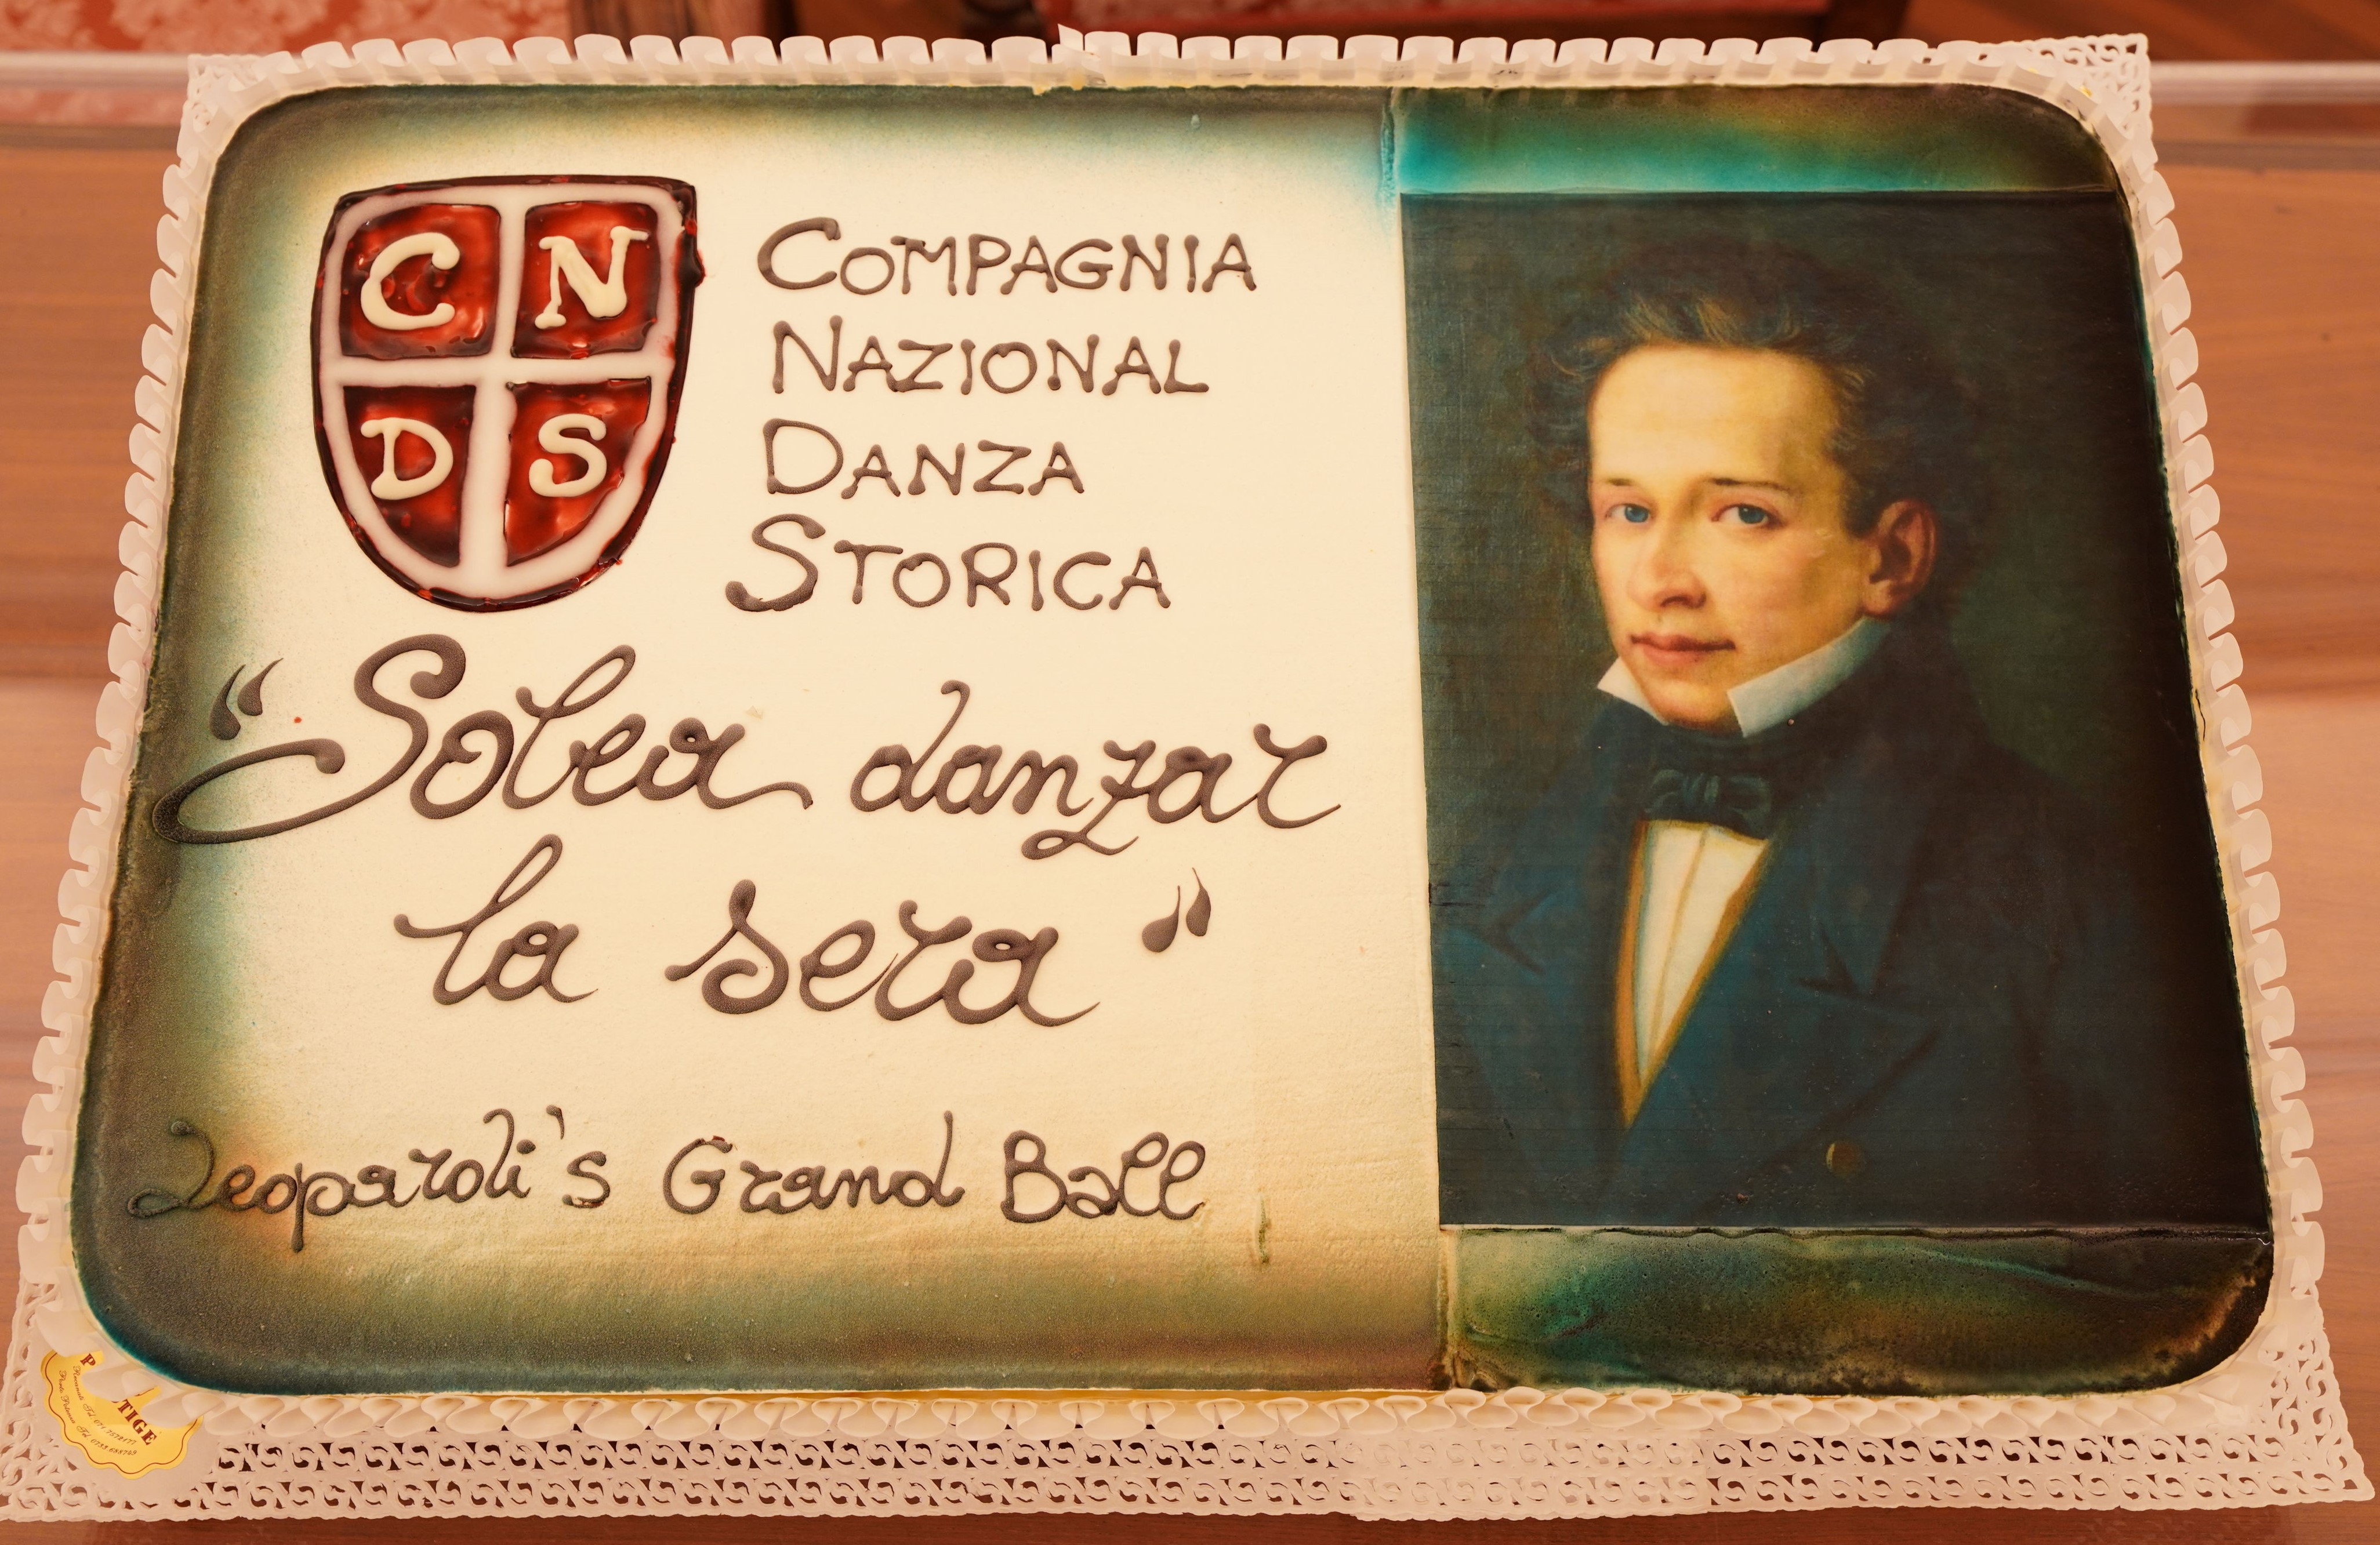 C N
D S
COMPAGNIA
NAZIONAL
DANZA
STORICA
"Solea danzar
la sera"
Leopardi's Grand Ball